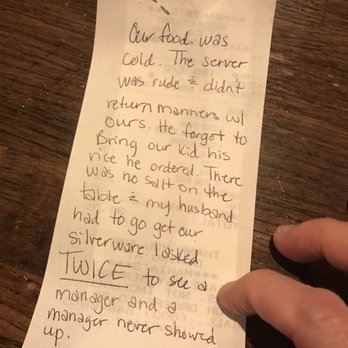 Our food was
cold. The server
was rude & didn't
return manners w/
ours. He forgot to
Bring our kid his
rice he ordered. There
was no salt on the
table & my husband
had to go get our
silverware. I asked
TWICE to see a
manager and a
manager never showed
up.